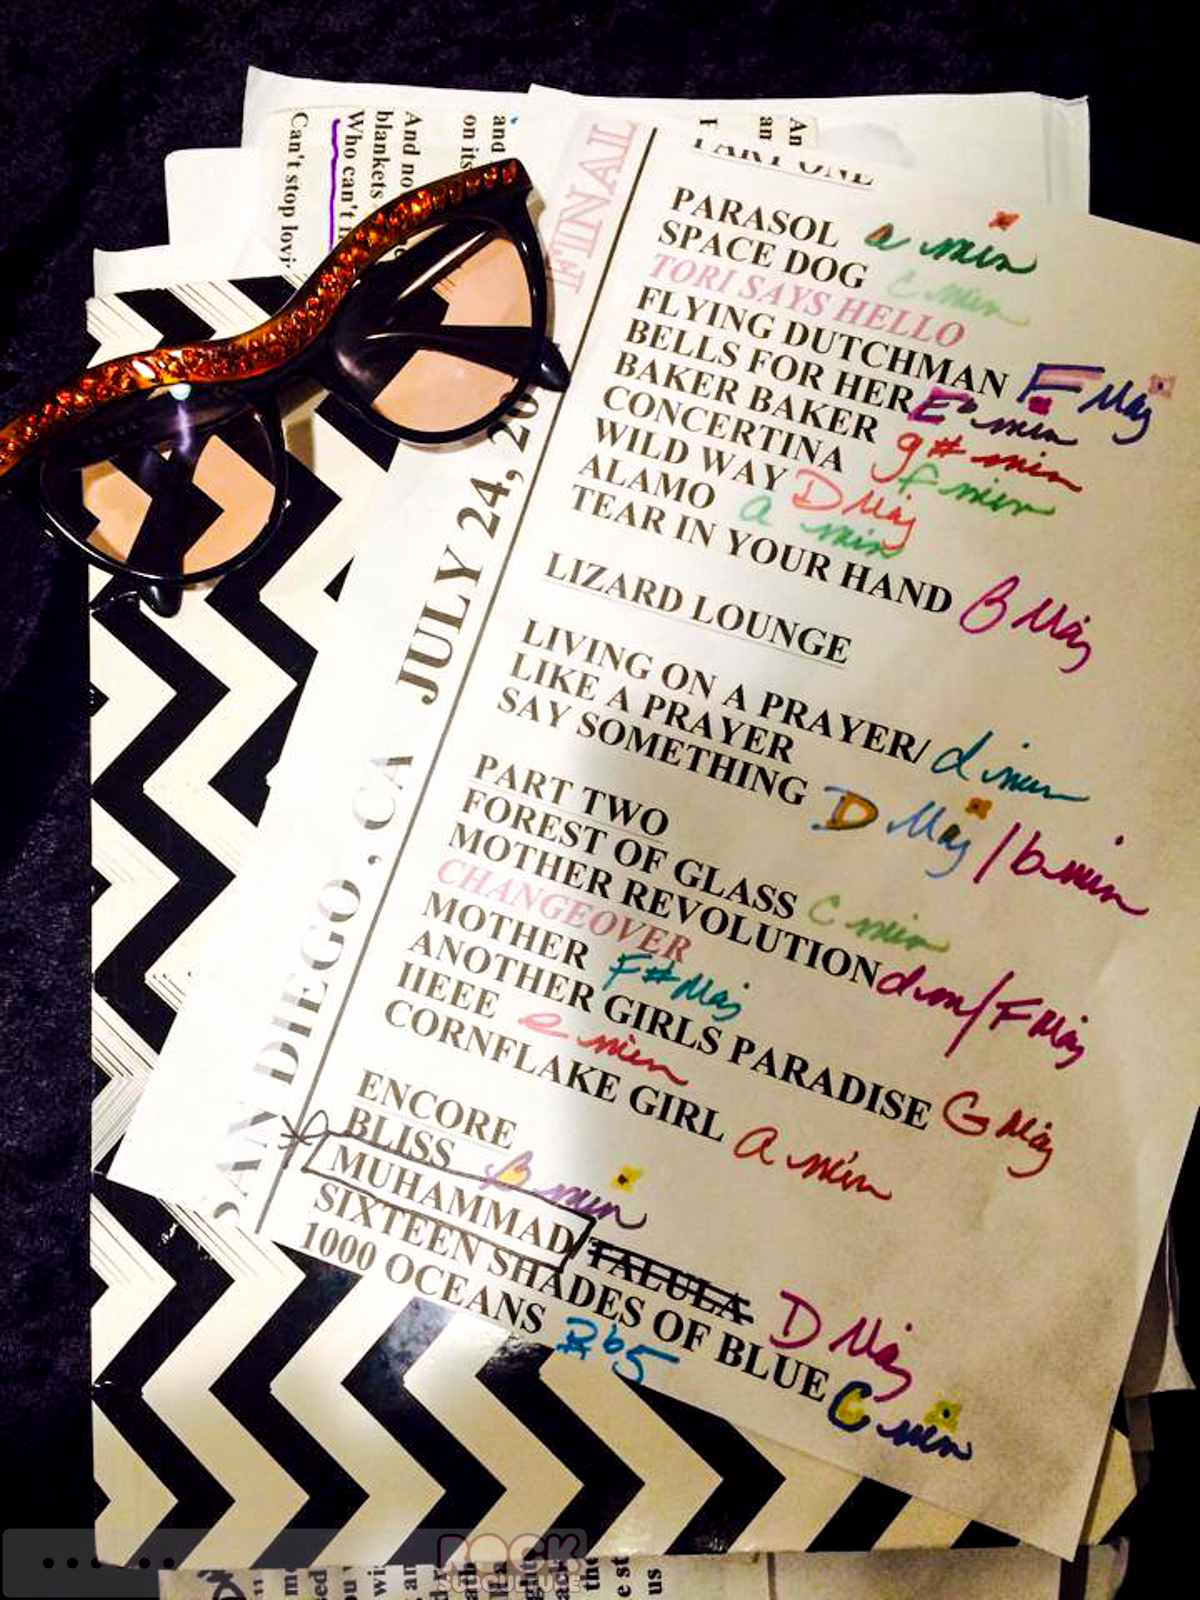 FINAL
SAN DIEGO, CA JULY 24, 20
PART ONE
PARASOL a min
SPACE DOG c min
TORI SAYS HELLO
FLYING DUTCHMAN F Maj
BELLS FOR HER Eb min
BAKER BAKER g# min
CONCERTINA f min
WILD WAY D Maj
ALAMO a min
TEAR IN YOUR HAND B Maj
LIZARD LOUNGE
LIVING ON A PRAYER/ d min
LIKE A PRAYER
SAY SOMETHING D Maj / b min
PART TWO
FOREST OF GLASS C min
MOTHER REVOLUTION d min/F Maj
CHANGEOVER
MOTHER F# Maj
ANOTHER GIRLS PARADISE G Maj
IIEEE e min
CORNFLAKE GIRL a min
ENCORE
BLISS B min
MUHAMMAD/ TALULA D Maj
SIXTEEN SHADES OF BLUE C min
1000 OCEANS
An
and
on its
And no
blankets
Who can't
Can't stop
ROCK
SUBCULTURE
the
us